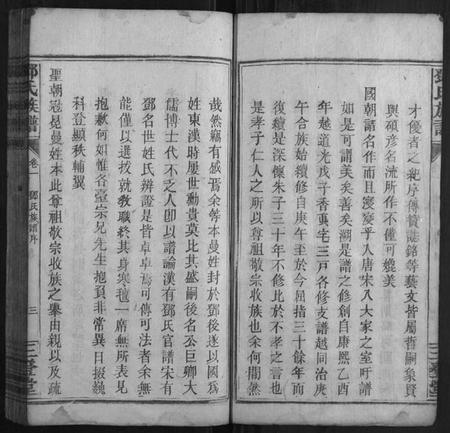 鄧氏族譜
才優者之紀序傳贊誌銘等藝文皆屬哲嗣象賢
與碩彥名流所作不僅可媲美
國朝諸名作而且浸浸乎入唐宋八大家之室吁譜
如是可謂美矣善矣溯是譜之修創自康熙乙酉
年越道光戊子香專宅三戶各修支譜越同治庚
午合族始續修自庚午至於今屈指三十餘年而
復續是深懷朱子三十年不修比於不孝之言也
是孝子仁人之所以尊祖敬宗收族也余何閒然
三
堂
哉然竊有感焉余鄧本曼姓封於鄧後遂以國為
姓東漢時屢世勳貴莫比其盛嗣後名公巨卿大
儒博士代不乏人卽以譜論漢有鄧氏官譜宋有
鄧名世姓氏辨證是皆卓卓焉可傳可法者余無
能僅以選拔就教職終其身寒氊一席無所表見
抱歉何如惟各臺宗兄先生抱負非常異日掇巍
科登顯秩輔翼
聖朝冠冕曼姓本此尊祖敬宗收族之舉由親以及疏
鄧氏族譜
卷一
鄧氏族譜序
三
三
堂